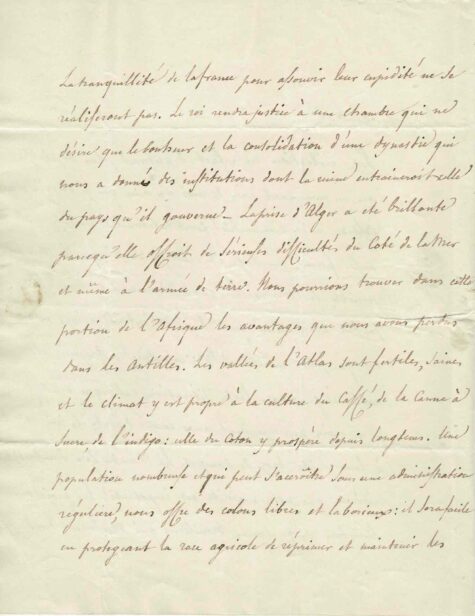 La tranquillité de la france pour assouvir leur cupidité ne se
réaliseront pas. Le roi rendra justice à une chambre qui ne
désire que le bonheur et la consolidation d'une dynastie qui
nous a donné des institutions dont la ruine entraineroit celle
du pays qu'il gouverne – La prise d'Alger a été brillante
parcequ'elle offroit de sérieuses difficultés du Coté de la Mer
et même à l'armée de terre. Nous pourrions trouver dans cette
portion de l'Afrique les avantages que nous avons perdus
dans les Antilles. Les vallées de l'Atlas sont fertiles, saines
et le climat y est propre à la culture du Caffé, de la Canne à
Sucre, de l'indigo : celle du Coton y prospère depuis longtems. Une
population nombreuse et qui peut s'accroître sous une administration
régulière, nous offre des colons libres et laborieux : il sera facile
en protegeant la race agricole de réprimer et maintenir les